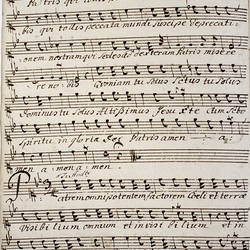 bis qui tollis peccata mundi suscipe deprecati
onem nostram qui sedes ad dexteram Patris misere
re nobis Quoniam tu solus Sctus tu solus
Dominus tu solus Altissimus Jesu
Spiritu in gloria Dei Patris amen a
men a men a men
Patrem omnipotentem factorem Coeli et terrae
Visibilium omnium et invisibilium et